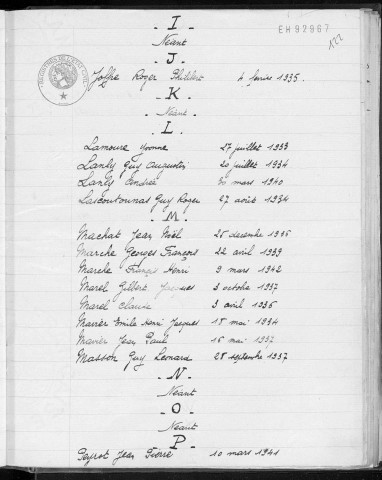 EH92967
122
- I -
Néant
- J -
Joffre Roger Philibert 4 février 1935.
- K -
Néant
- L -
Lamoure Yvonne 27 juillet 1933
Lanly Guy Augustin 20 juillet 1934
Lanly Andrée 30 mars 1940
Lascoutounas Guy Roger 27 août 1934
- M -
Machat Jean Noël 25 décembre 1935
Marche Georges François 22 avril 1939
Marche François Henri 9 mars 1942
Marel Gilbert Jacques 3 octobre 1937
Marel Claude 3 avril 1936
Mavier Emile Henri Jacques 18 mai 1934
Mavier Jean Paul 16 mai 1937
Masson Guy Léonard 28 septembre 1937
- N -
Néant
- O -
Néant
- P -
Peyrot Jean Pierre 10 mars 1941